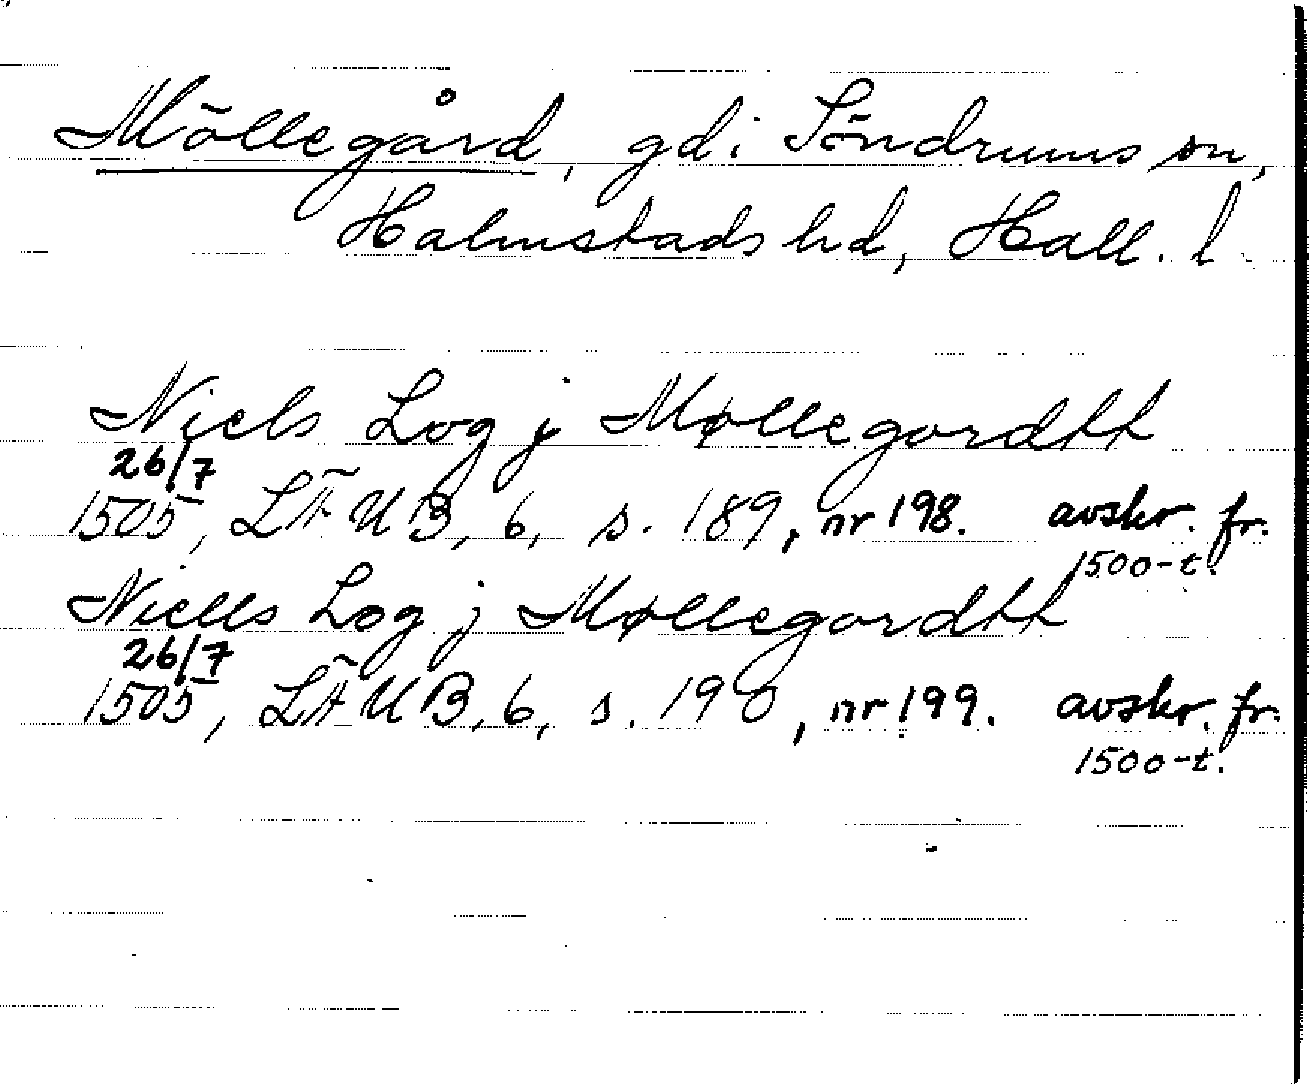 Möllegård, gd i Söndrums sn,
Halmstads hd, Hall. l.
Niels Log j Møllegordtt
26/7
1505, LÄUB, 6, s. 189, nr 198. avskr. fr.
1500-t.
Niells Log j Møllegordtt
26/7
1505, LÄUB, 6, s. 190, nr 199. avskr. fr.
1500-t.